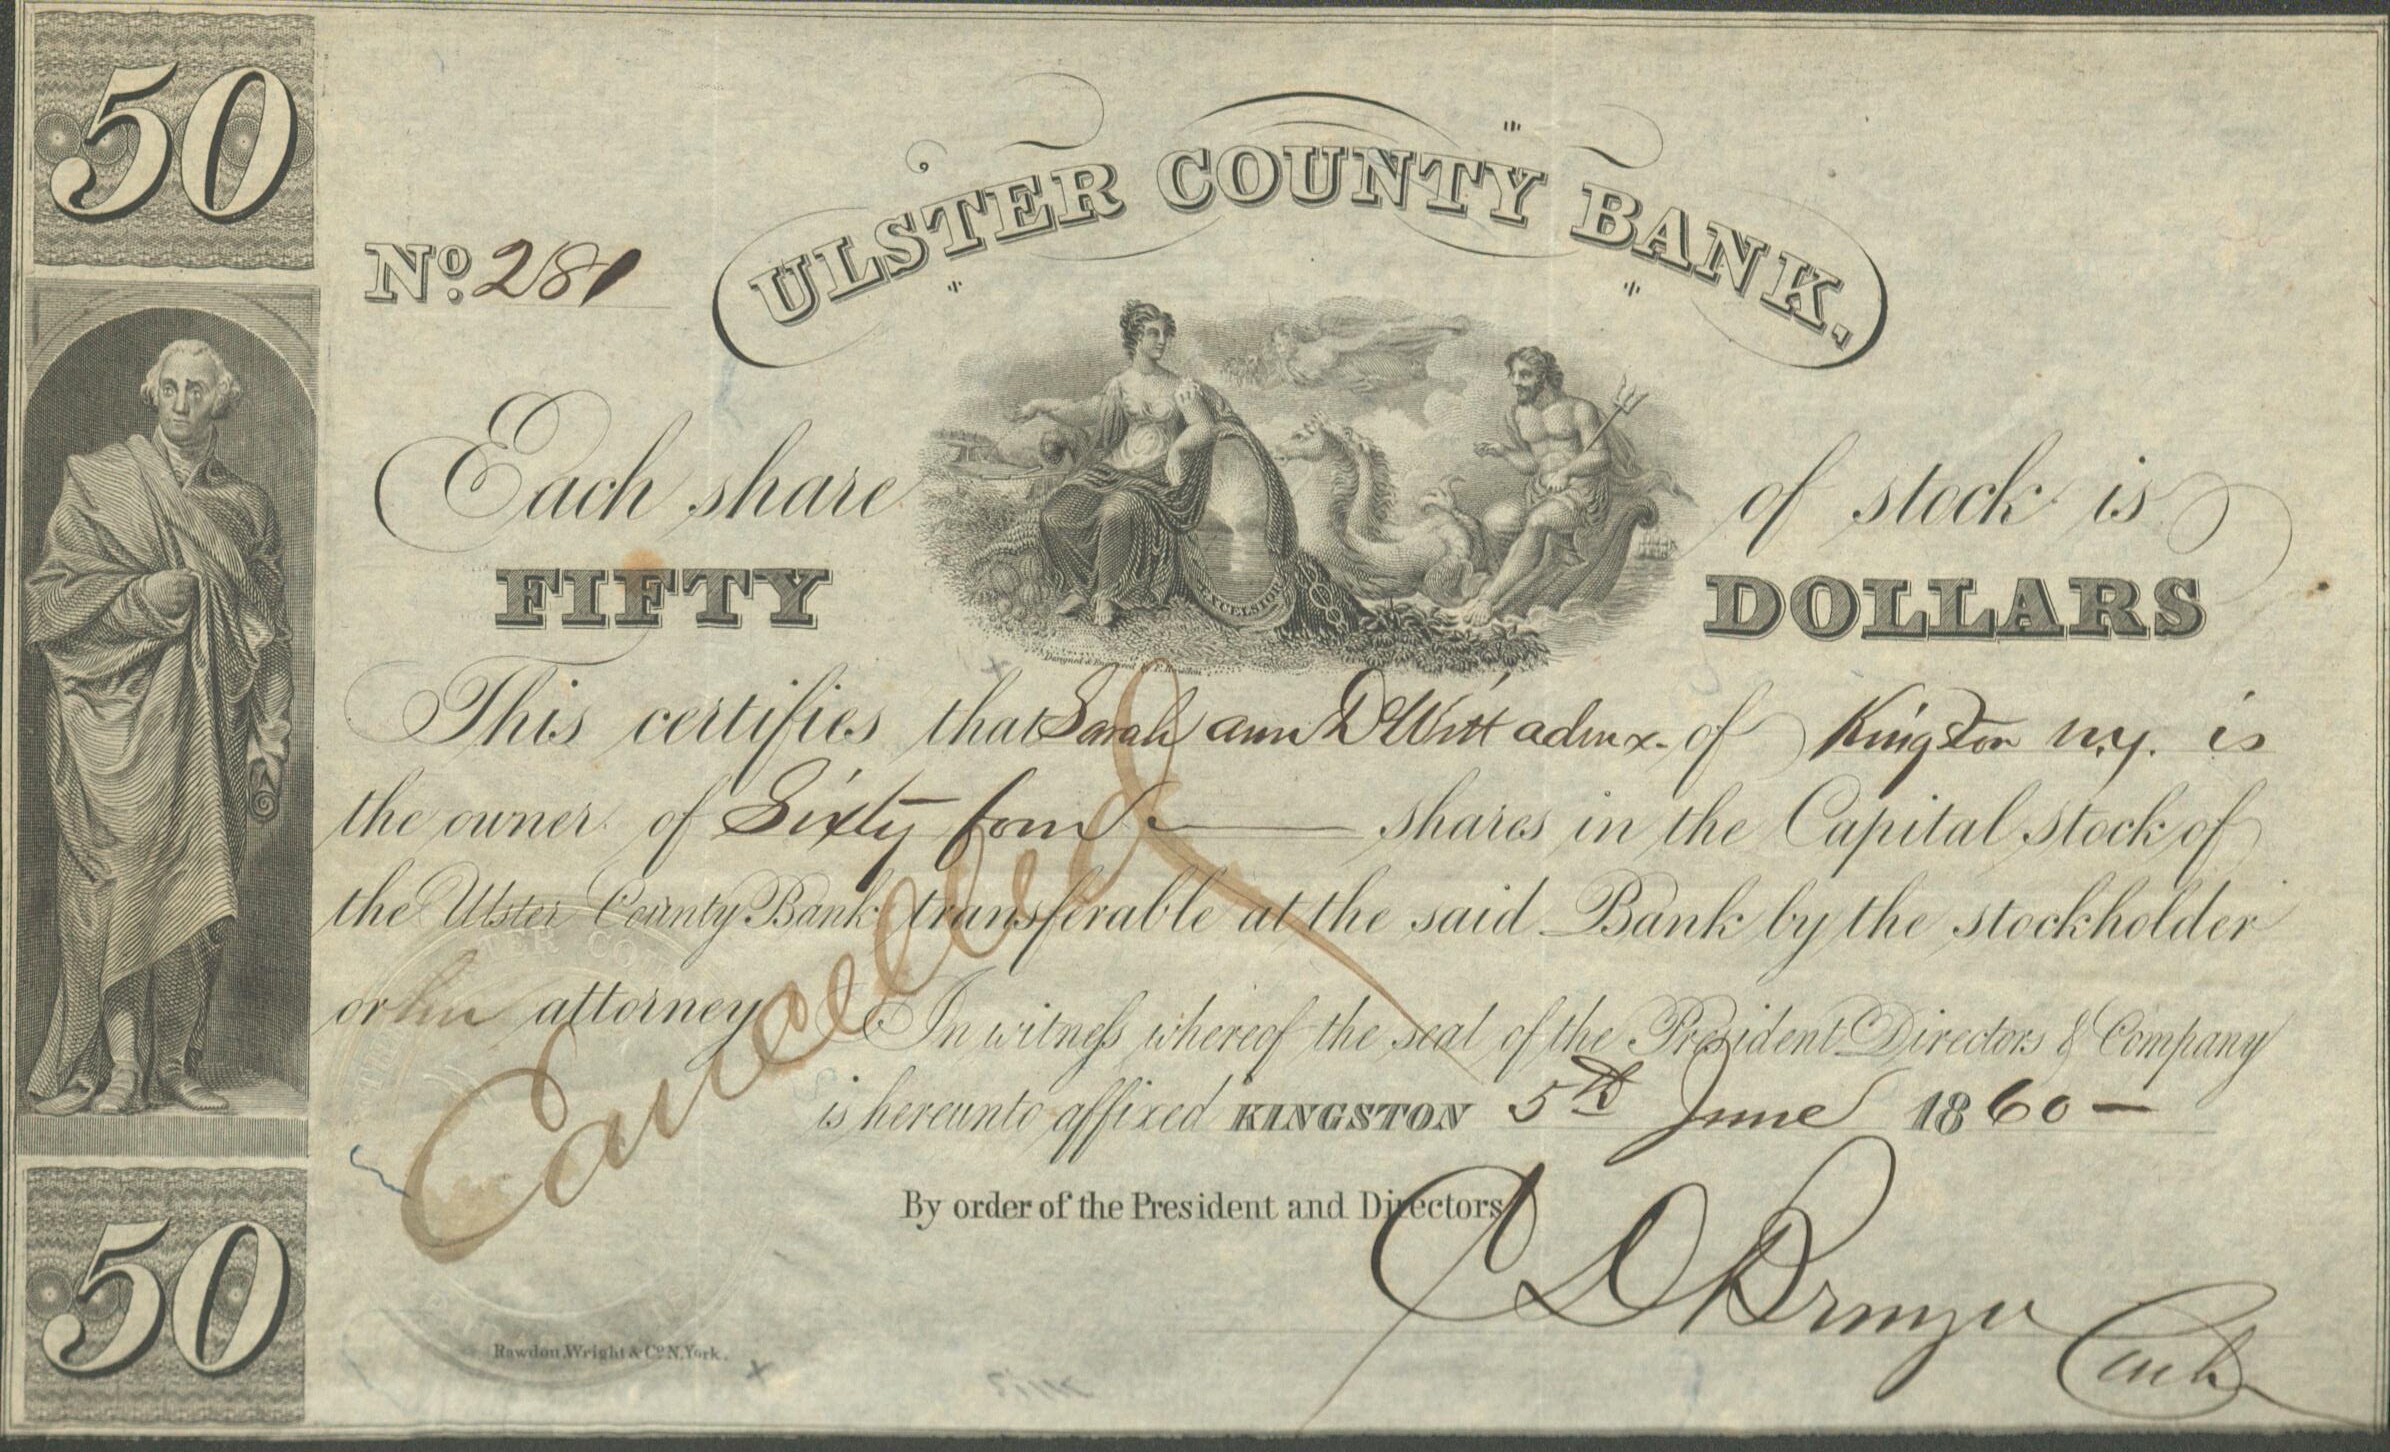 50
ULSTER COUNTY BANK.
No. 281
Each share of stock is
FIFTY DOLLARS
EXCELSIOR
This certifies that Sarah ann DeWitt admx. of Kingston N.Y. is
the owner of Sixty four shares in the Capital stock of
the Ulster County Bank transferable at the said Bank by the stockholder
or her attorney In witness whereof the seal of the President Directors & Company
is hereunto affixed KINGSTON 5th June 1860
Cancelled
By order of the President and Directors
C D Bruyn Cash
50
Rawdon, Wright & Co. N. York.